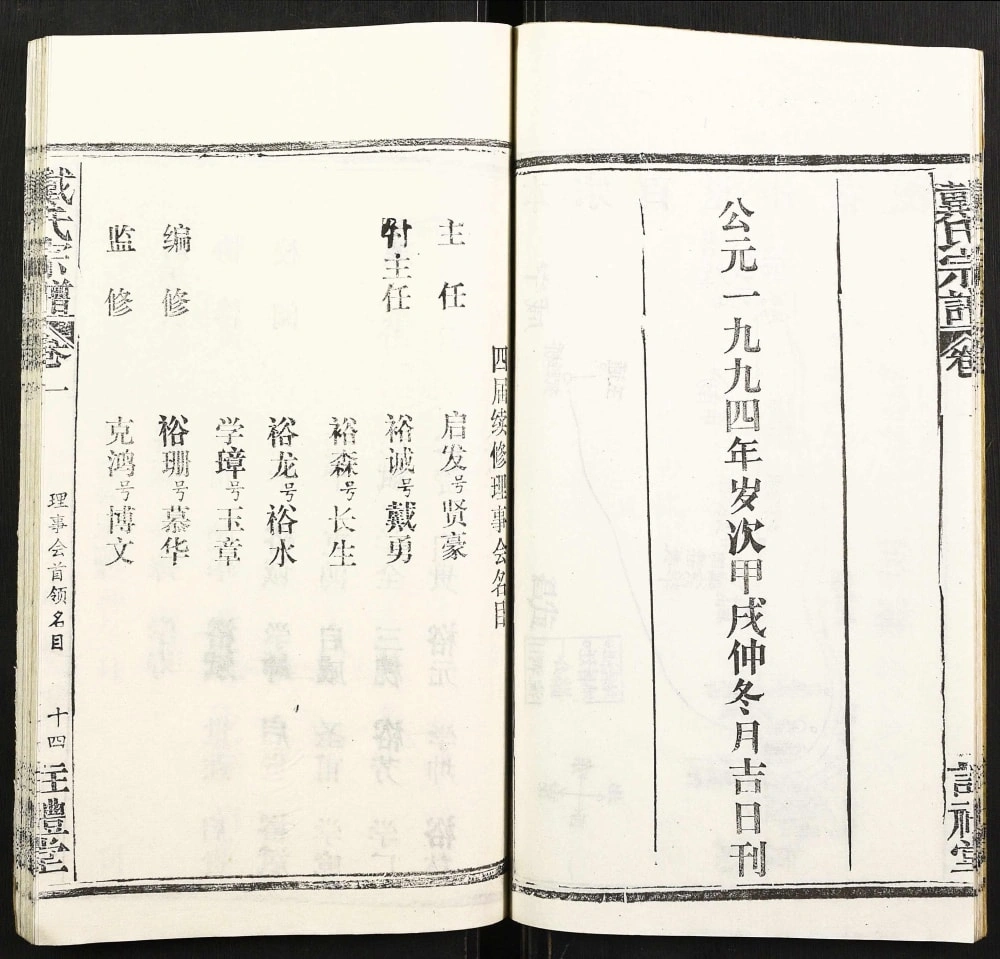 戴氏宗譜 卷
詩禮堂
公元一九九四年岁次甲戌仲冬月吉日刊
四届续修理事会名目
主任 启发号贤豪
付主任 裕诚号戴勇
裕森号长生
裕龙号裕水
学璋号玉章
编修 裕珊号慕华
监修 克鸿号博文
戴氏宗譜 卷一 理事会首领名目 十四 詩禮堂